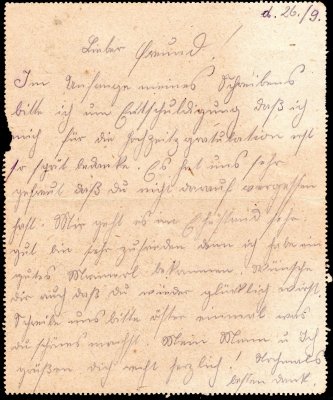 d. 26./9.
Lieber Freund!
Im Anfange meines Schreibens
bitte ich um Entschuldigung daß ich
mich für die Hochzeitsgratulation erst
so spät bedanke. Es hat uns sehr
gefreut daß Du nicht darauf vergessen
hast. Mir geht es im Ehestand sehr
gut bin sehr zufrieden denn ich habe ein
gutes Mannerl bekommen. Wünsche
dir auch daß du wieder glücklich wirst.
Schreibe uns bitte öfter einmal was
du schönes machst. Mein Mann u Ich
grüßen dich recht herzlich! Nochmals
besten Dank.